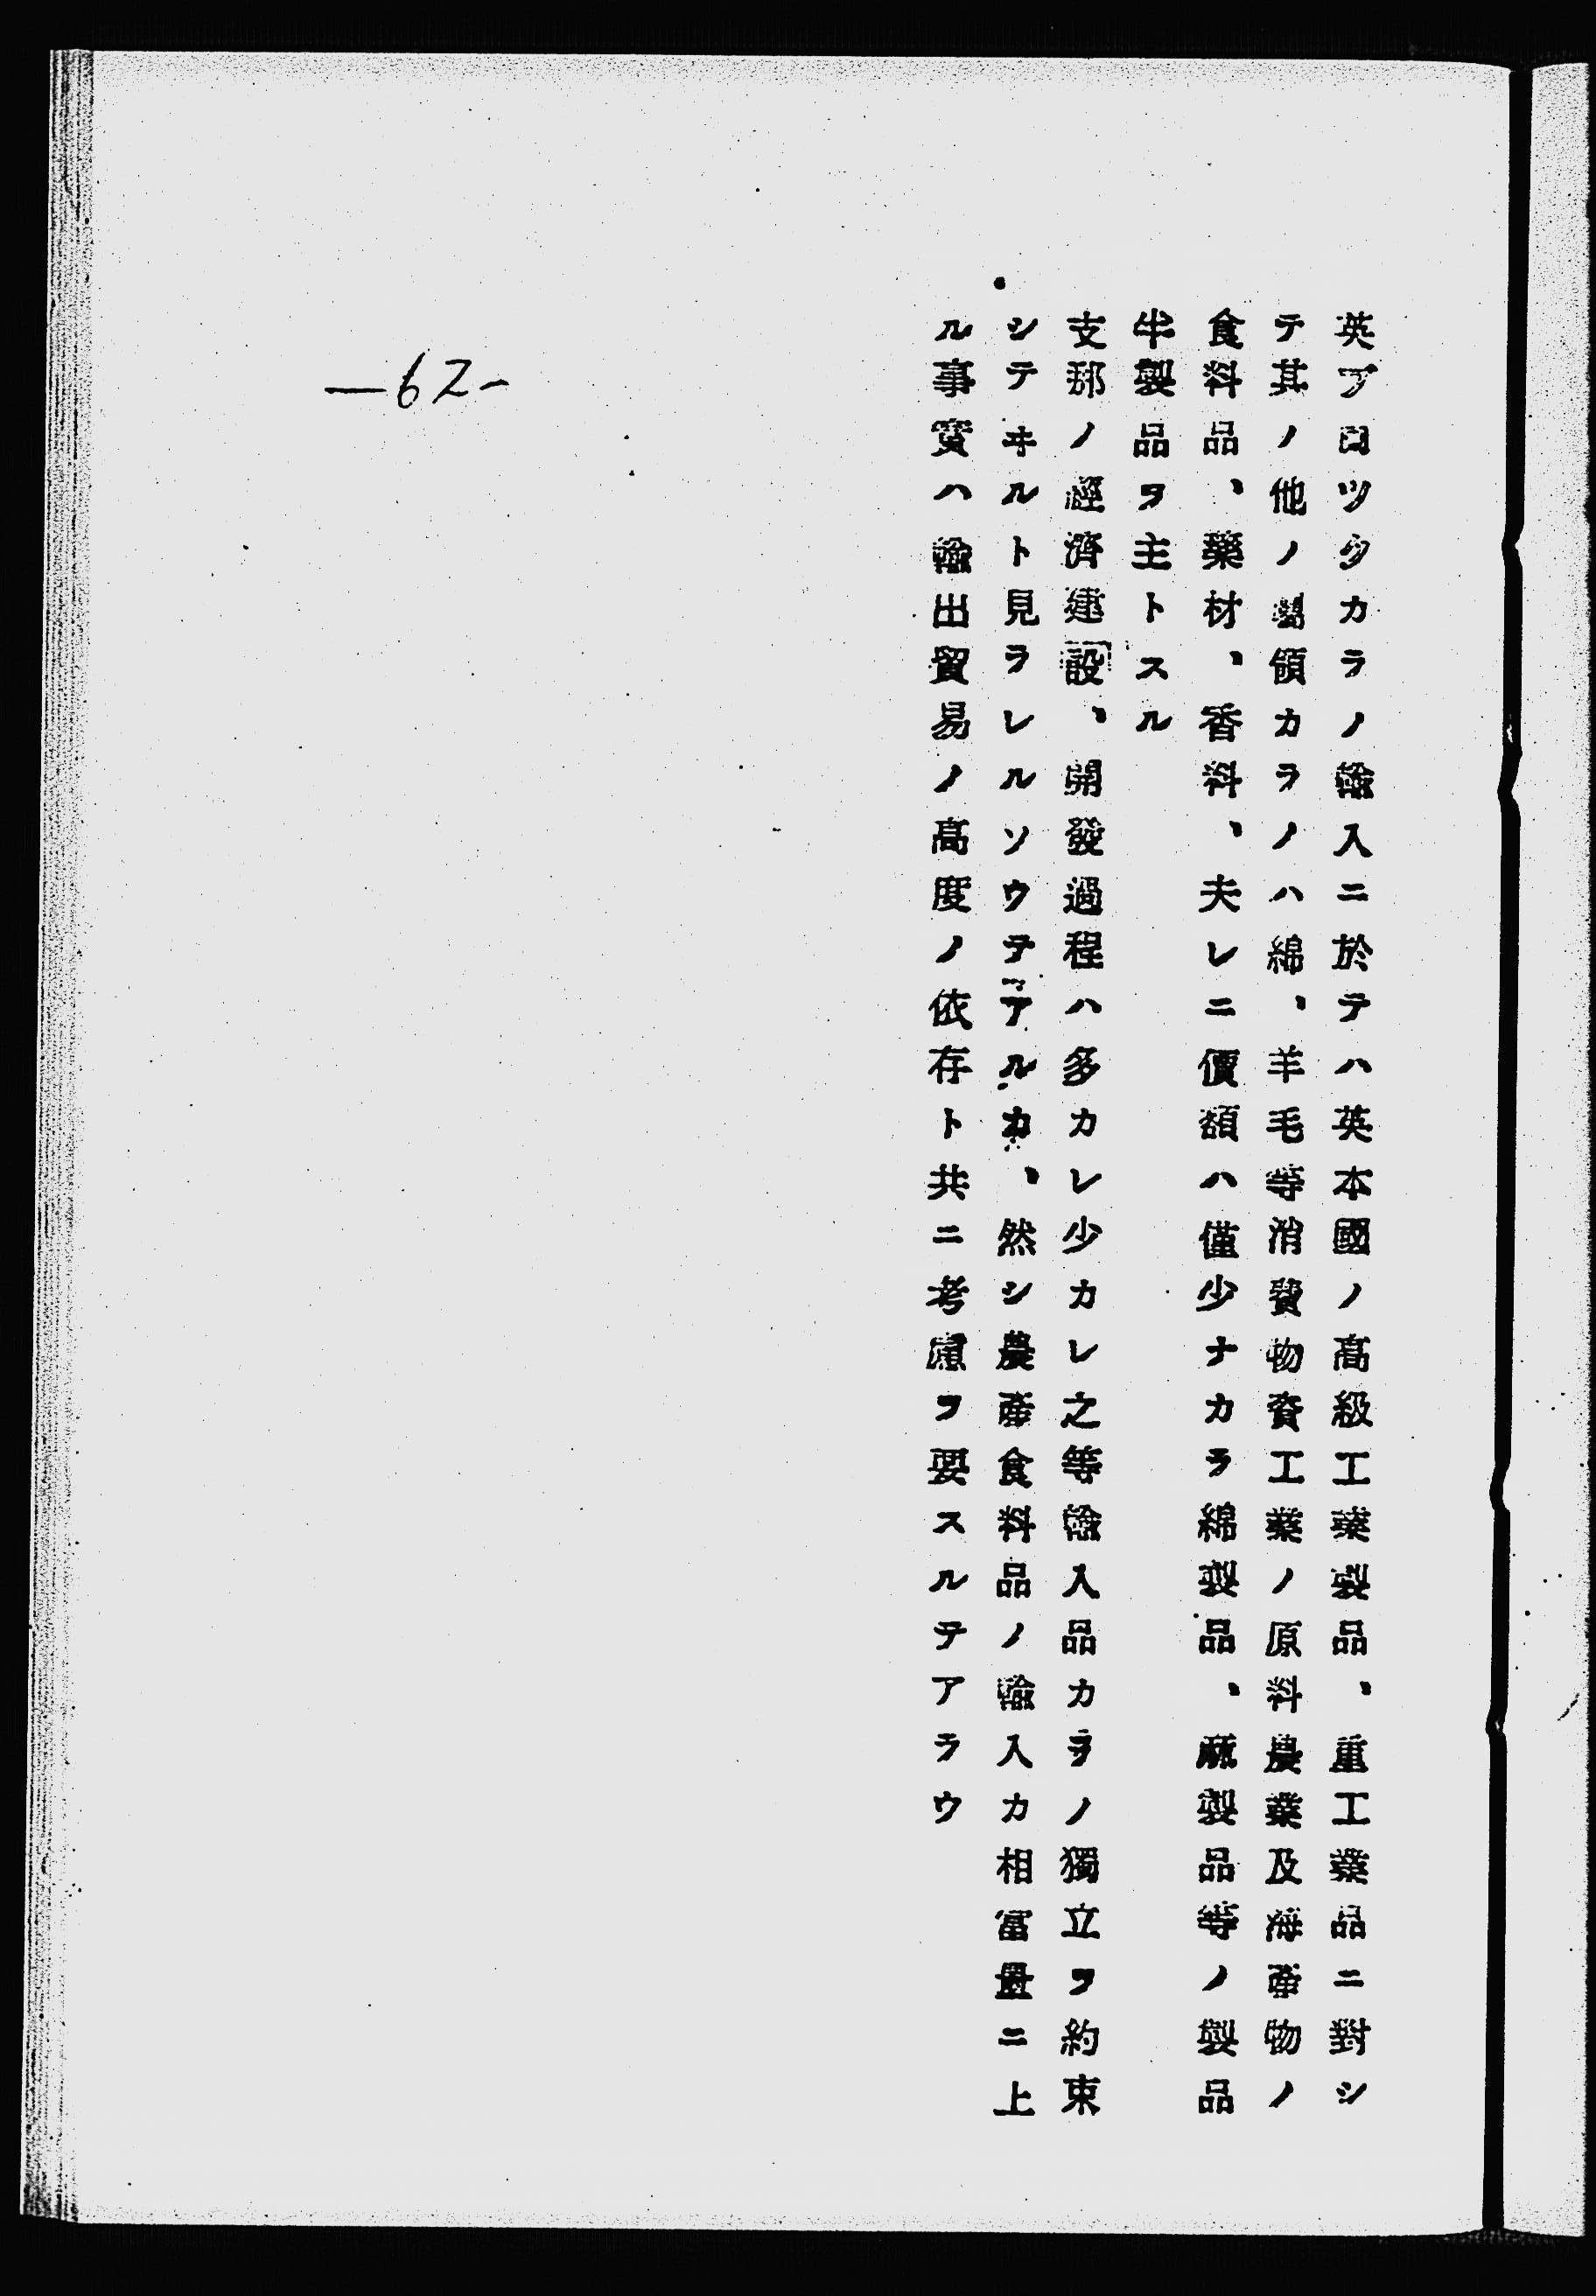 英ブロツクカラノ輸入ニ於テハ英本國ノ高級工業製品、重工業品ニ對シ
テ其ノ他ノ屬領カラノハ綿、羊毛等消費物資工業ノ原料農業及海産物ノ
食料品、藥材、香料、夫レニ價額ハ僅少ナカラ綿製品、麻製品等ノ製品
半製品ヲ主トスル
支那ノ經濟建設、開發過程ハ多カレ少カレ之等輸入品カラノ獨立ヲ約束
シテヰルト見ラレルソウテアルカ、然シ農産食料品ノ輸入カ相當量ニ上
ル事實ハ輸出貿易ノ高度ノ依存ト共ニ考慮ヲ要スルテアラウ
—62-